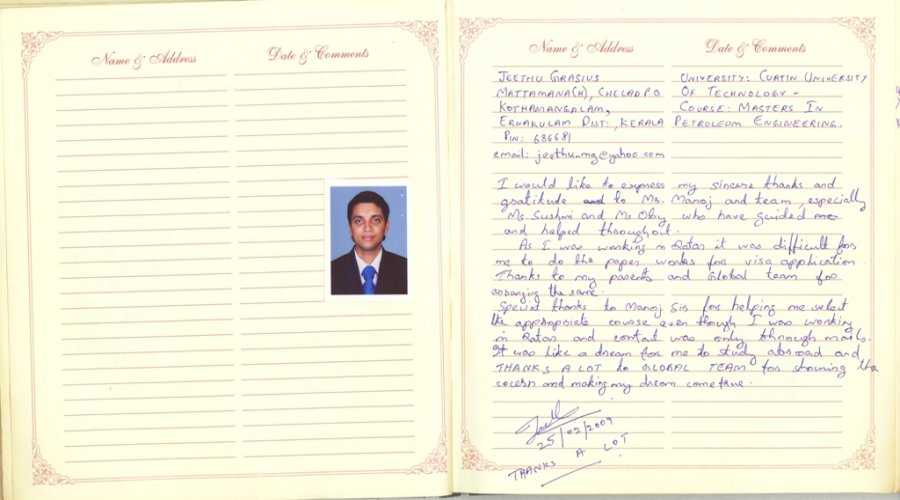 Name & Address
Date & Comments
Name & Address
Date & Comments
JEETHU GRASIUS
MATTAMANA(H), CHELAD.P.O
KOTHAMANGALAM,
ERNAKULAM DIST:, KERALA
PIN: 686681
email: jeethu_mg@yahoo.com
UNIVERSITY: CURTIN UNIVERSITY
OF TECHNOLOGY -
COURSE: MASTERS IN
PETROLEUM ENGINEERING.
I would like to express my sincere thanks and
gratitude to Mr. Manoj and team, especially
Ms. Sushmi and Ms. who have guided me
and helped throughout.
As I was working in Qatar it was difficult for
me to do the paper works for visa application.
Thanks to my parents and Global team for
arranging the same.
Special thanks to Manoj Sir for helping me select
the appropriate course even though I was working
in Qatar and contact was only through mails.
It was like a dream for me to study abroad and
THANKS A LOT to GLOBAL TEAM for showing the
and making my dream come true.
25/02/2009
THANKS A LOT